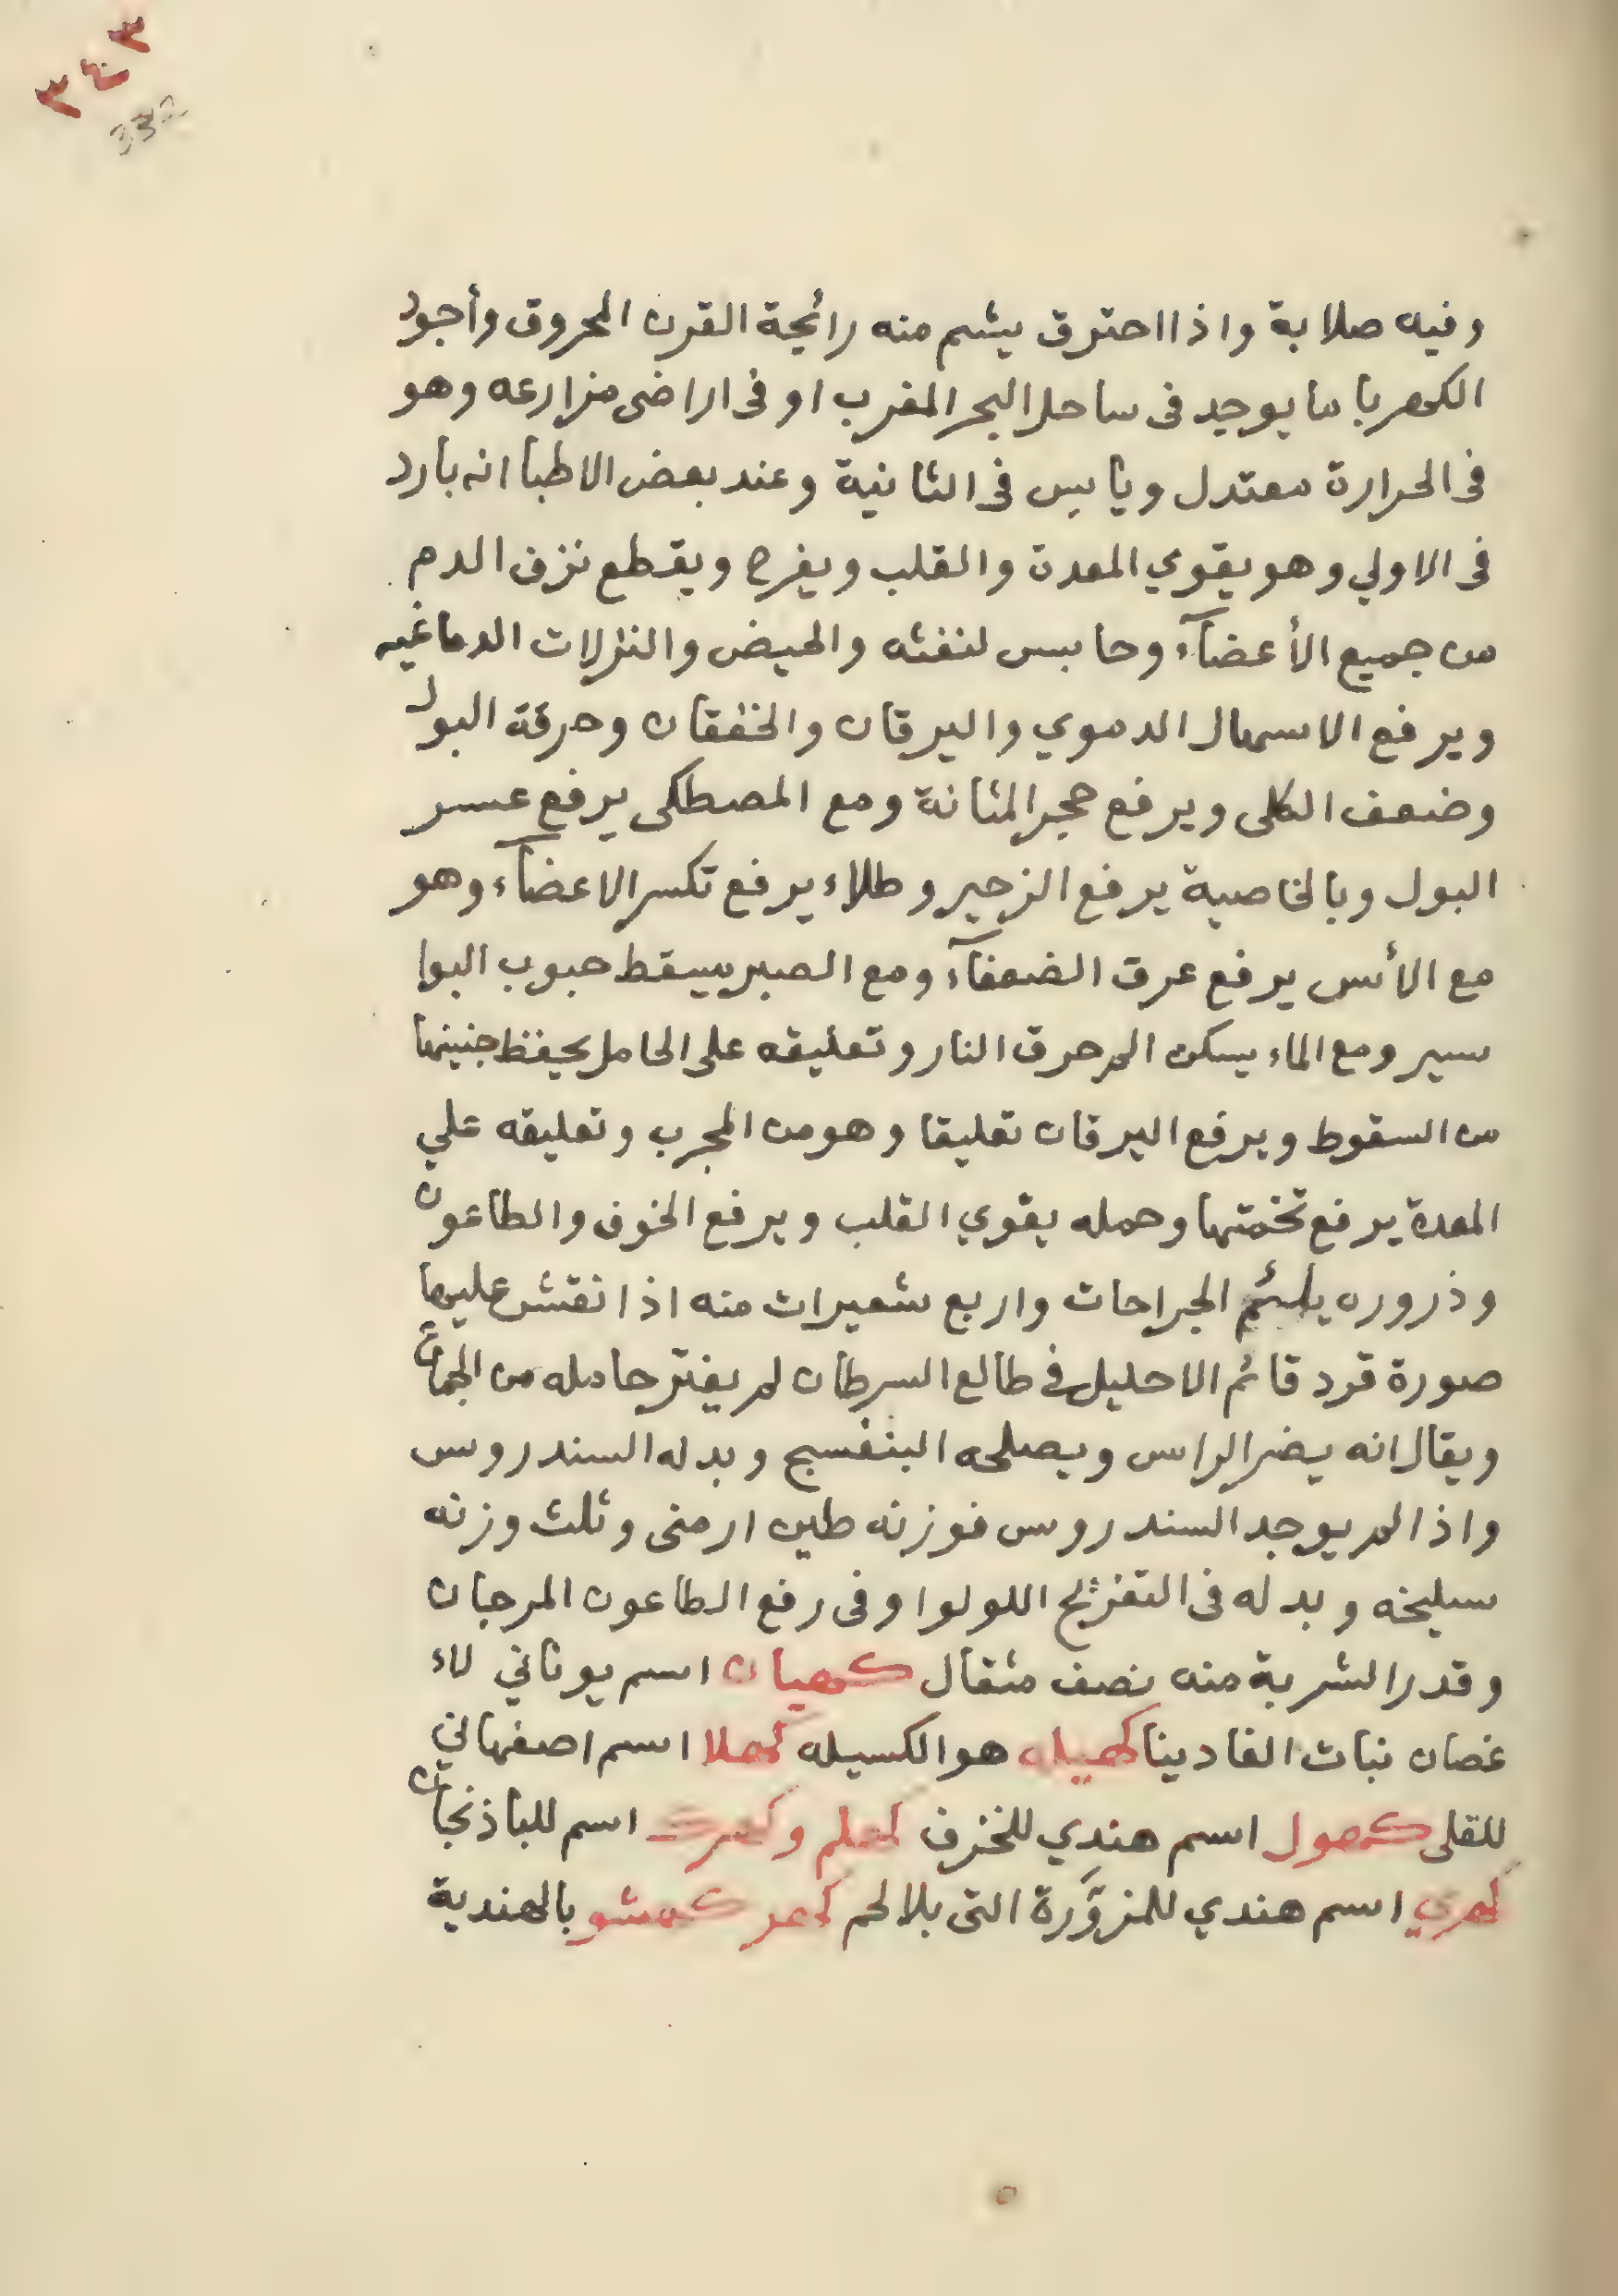 ٣٤٣
332
وفيه صلابة واذا احترق يشم منه رائحة القرن المحروق وأجود
الكهربا ما يوجد فى ساحل البحر المغرب او فى اراضى مزارعه وهو
فى الحرارة معتدل ويابس فى الثانية وعند بعض الاطبا انه بارد
فى الاولي وهو يقوي المعدة والقلب ويفرح ويقطع نزف الدم
من جميع الأعضآء وحابس لنفثه والحيض والنزلات الدماغيه
ويرفع الاسهال الدموي واليرقان والخفقان وحرقة البول
وضعف الكلى ويرفع حجر المثانة ومع المصطكى يرفع عسر
البول وبالخاصية يرفع الزحير وطلاء يرفع تكسر الاعضآء وهو
مع الأس يرفع عرق الضعفآء ومع الصبر يسقط حبوب البوا
سير ومع الماء يسكن الم حرق النار وتعليقه على الحامل يحفظ جنينها
من السقوط ويرفع اليرقان تعليقا وهو من المجرب وتعليقه علي
المعدة يرفع تخمتها وحمله يقوي القلب ويرفع الخوف والطاعون
وذروره يلئم الجراحات واربع شعيرات منه اذا نقش عليها
صورة قرد قائم الاحليل في طالع السرطان لم يفتر حامله من الجماع
ويقال انه يضر الراس ويصلحه البنفسج وبدله السندروس
واذا لم يوجد السندروس فوزنه طين ارمنى وثلث وزنه
سليخه وبدله فى التفريح اللولوا وفى رفع الطاعون المرجان
وقدر الشربة منه نصف مثقال كهيان اسم يوناني لاء
غصان نبات الفادينا كهيله هو الكسيله كهلا اسم اصفهاني
للقلى كهول اسم هندي للخزف كهلم و اسم للباذنجان
كهري اسم هندي للمزوَّرة التى بلا لحم بالهندية